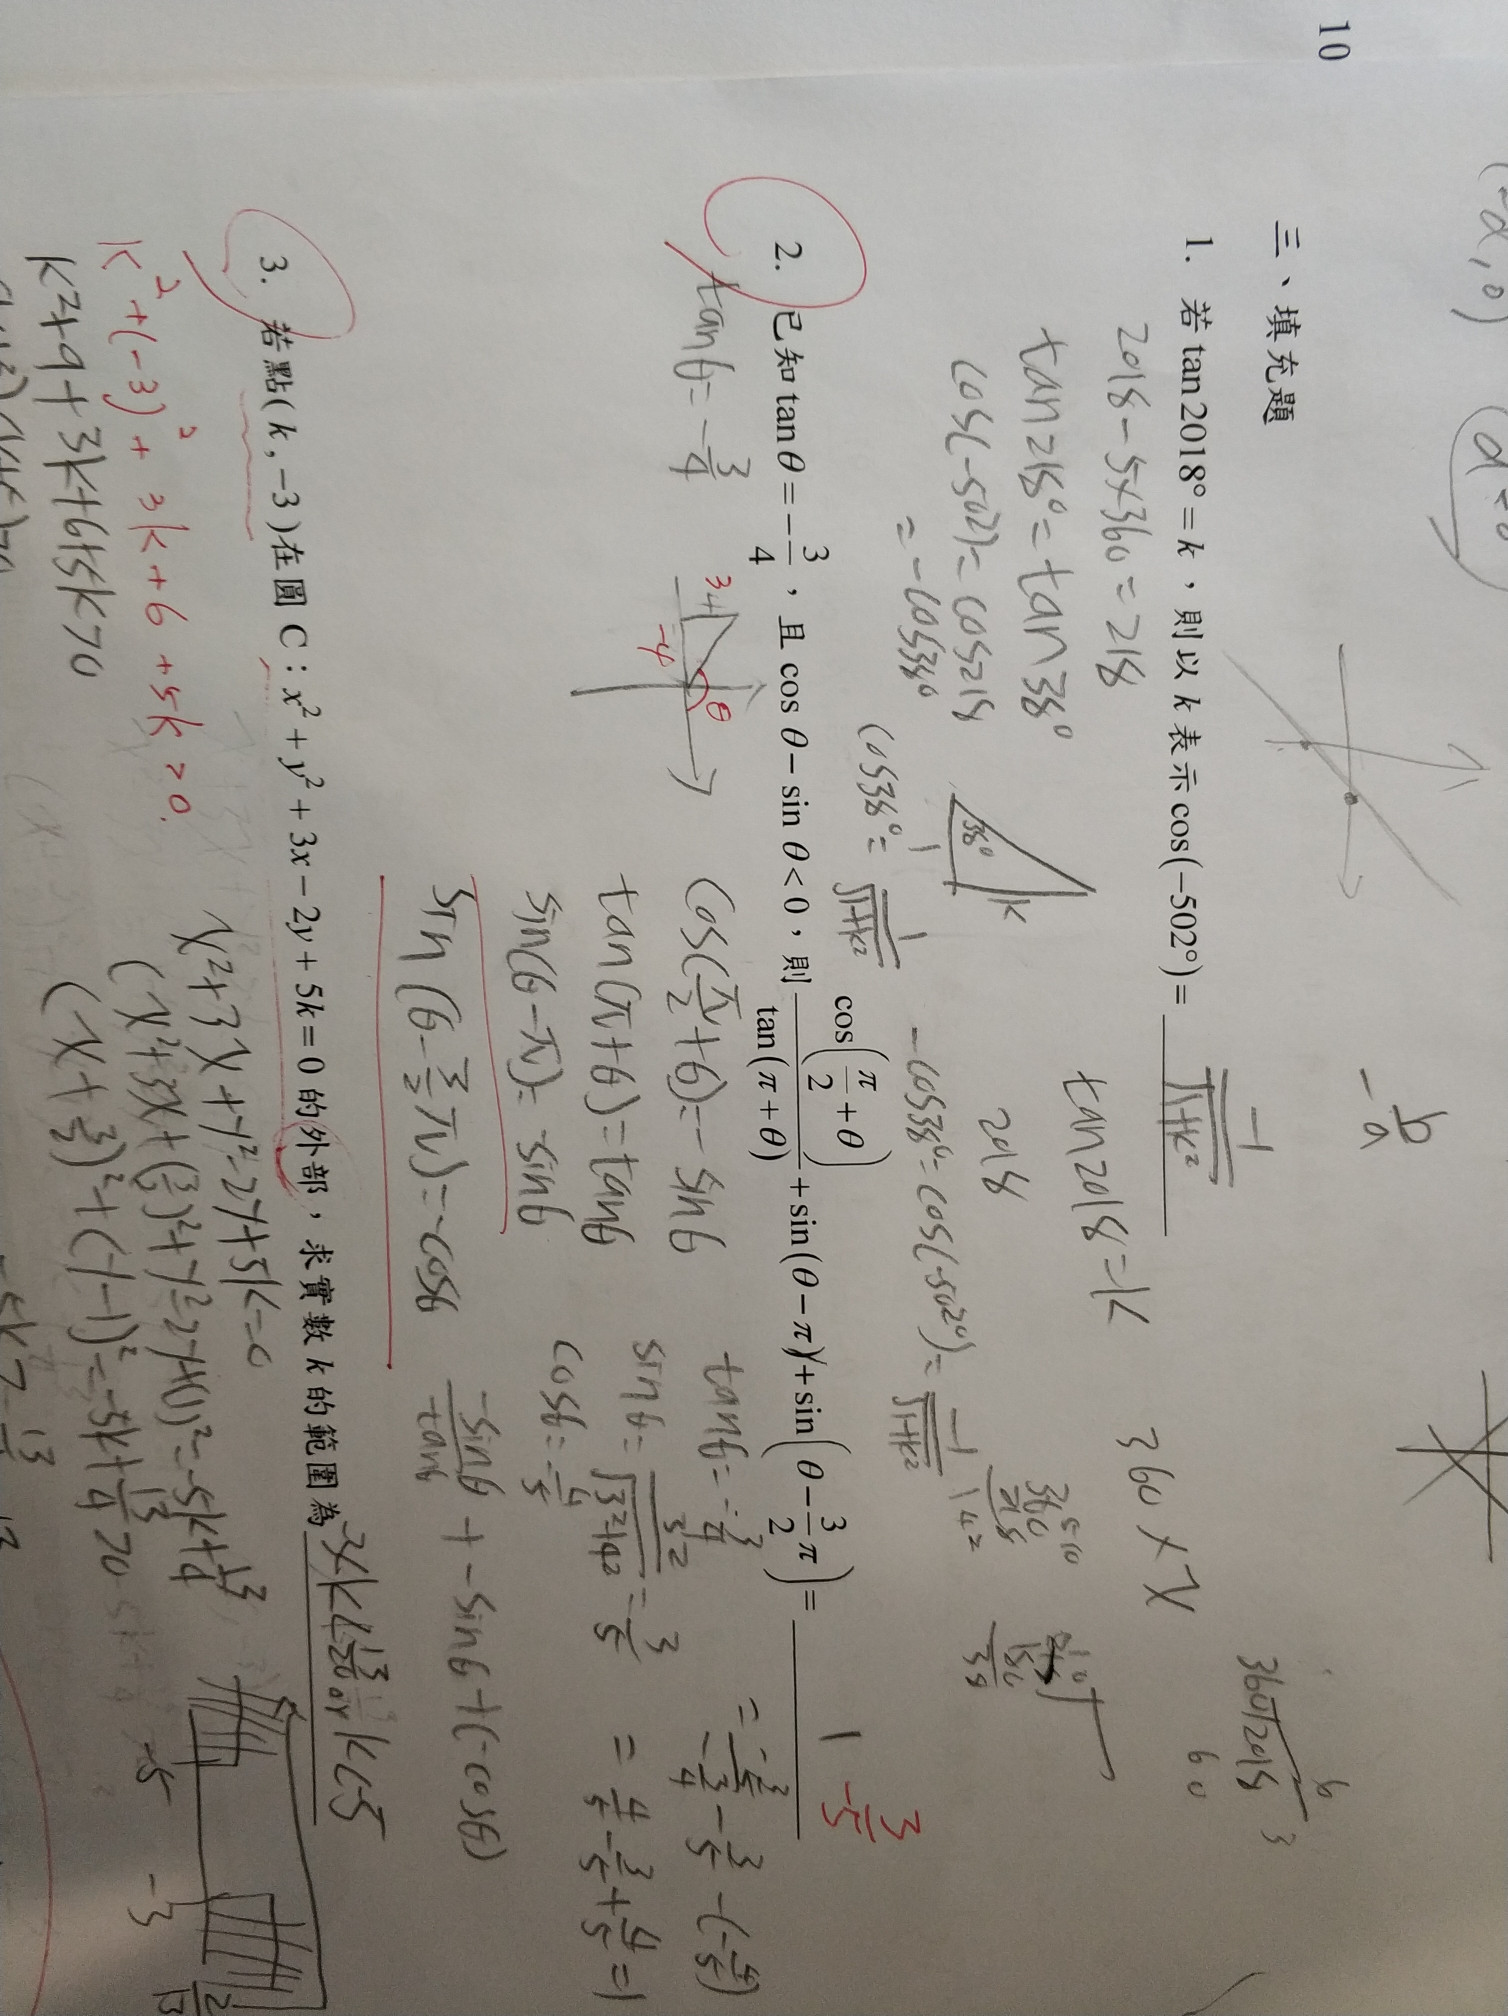 10
(-a,0)
三、填充題
1. 若 tan 2018° = k，則以 k 表示 cos(−502°) = -1/√(1+k²)
2018 - 5×360 = 218
tan218° = tan38°
cos(-502) = cos218
= -cos38°
38°
k
1
cos38° = 1/√(1+k²)
-cos38° = cos(-502°) = -1/√(1+k²)
tan2018 = k
2018
360 × x
-b/a
2. 已知 tan θ = −3/4，且 cos θ − sin θ < 0，則 cos(π/2 + θ)/tan(π + θ) + sin(θ − π) + sin(θ − 3/2 π) = 1
3/5
tanθ = -3/4
3
-4
θ
cos(π/2+θ) = -sinθ
tan(π+θ) = tanθ
sin(θ-π) = -sinθ
sin(θ-3/2π) = -cosθ
tanθ = -3/4
sinθ = 3/√(3²+4²) = 3/5
cosθ = -4/5
-sinθ/tanθ + -sinθ + (-cosθ)
= -3/5/-3/4 - 3/5 - (-4/5)
= 4/5 - 3/5 + 4/5 = 1
3. 若點(k, −3)在圓 C：x² + y² + 3x − 2y + 5k = 0 的外部，求實數 k 的範圍為 -3<k<13/20 or k<-5
k² + (-3)² + 3k + 6 + 5k > 0.
k² + 9 + 3k + 6 + 5k > 0
x² + 3x + y² - 2y + 5k = 0
(x² + 3x + (3/2)² + y² - 2y + (1)² = -5k + 13/4
(x + 3/2)² + (y - 1)² = -5k + 13/4 > 0
-5k > -13/4
-5
-3